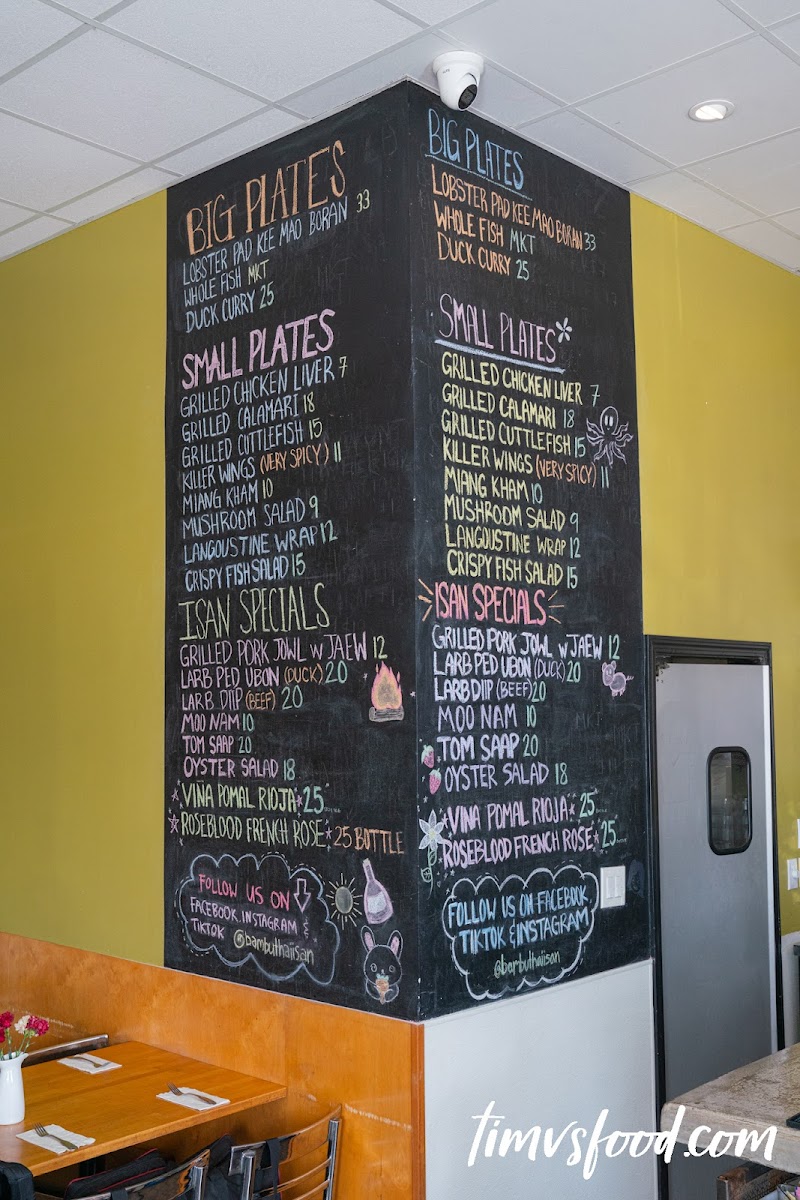 BIG PLATES
LOBSTER PAD KEE MAO BORAN 33
WHOLE FISH MKT
DUCK CURRY 25
SMALL PLATES
GRILLED CHICKEN LIVER 7
GRILLED CALAMARI 18
GRILLED CUTTLEFISH 15
KILLER WINGS (VERY SPICY) 11
MIANG KHAM 10
MUSHROOM SALAD 9
LANGOUSTINE WRAP 12
CRISPY FISH SALAD 15
ISAN SPECIALS
GRILLED PORK JOWL W JAEW 12
LARB PED UBON (DUCK) 20
LARB DIIP (BEEF) 20
MOO NAM 10
TOM SAAP 20
OYSTER SALAD 18
VIÑA POMAL RIOJA 25
ROSEBLOOD FRENCH ROSE 25 BOTTLE
FOLLOW US ON
FACEBOOK, INSTAGRAM &
TIKTOK @bambuthaiisan
BIG PLATES
LOBSTER PAD KEE MAO BORAN 33
WHOLE FISH MKT
DUCK CURRY 25
SMALL PLATES
GRILLED CHICKEN LIVER 7
GRILLED CALAMARI 18
GRILLED CUTTLEFISH 15
KILLER WINGS (VERY SPICY) 11
MIANG KHAM 10
MUSHROOM SALAD 9
LANGOUSTINE WRAP 12
CRISPY FISH SALAD 15
ISAN SPECIALS
GRILLED PORK JOWL W JAEW 12
LARB PED UBON (DUCK) 20
LARB DIIP (BEEF) 20
MOO NAM 10
TOM SAAP 20
OYSTER SALAD 18
VINA POMAL RIOJA 25
ROSEBLOOD FRENCH ROSE 25
FOLLOW US ON FACEBOOK,
TIKTOK & INSTAGRAM
@barbuthaiisan
timvsfood.com